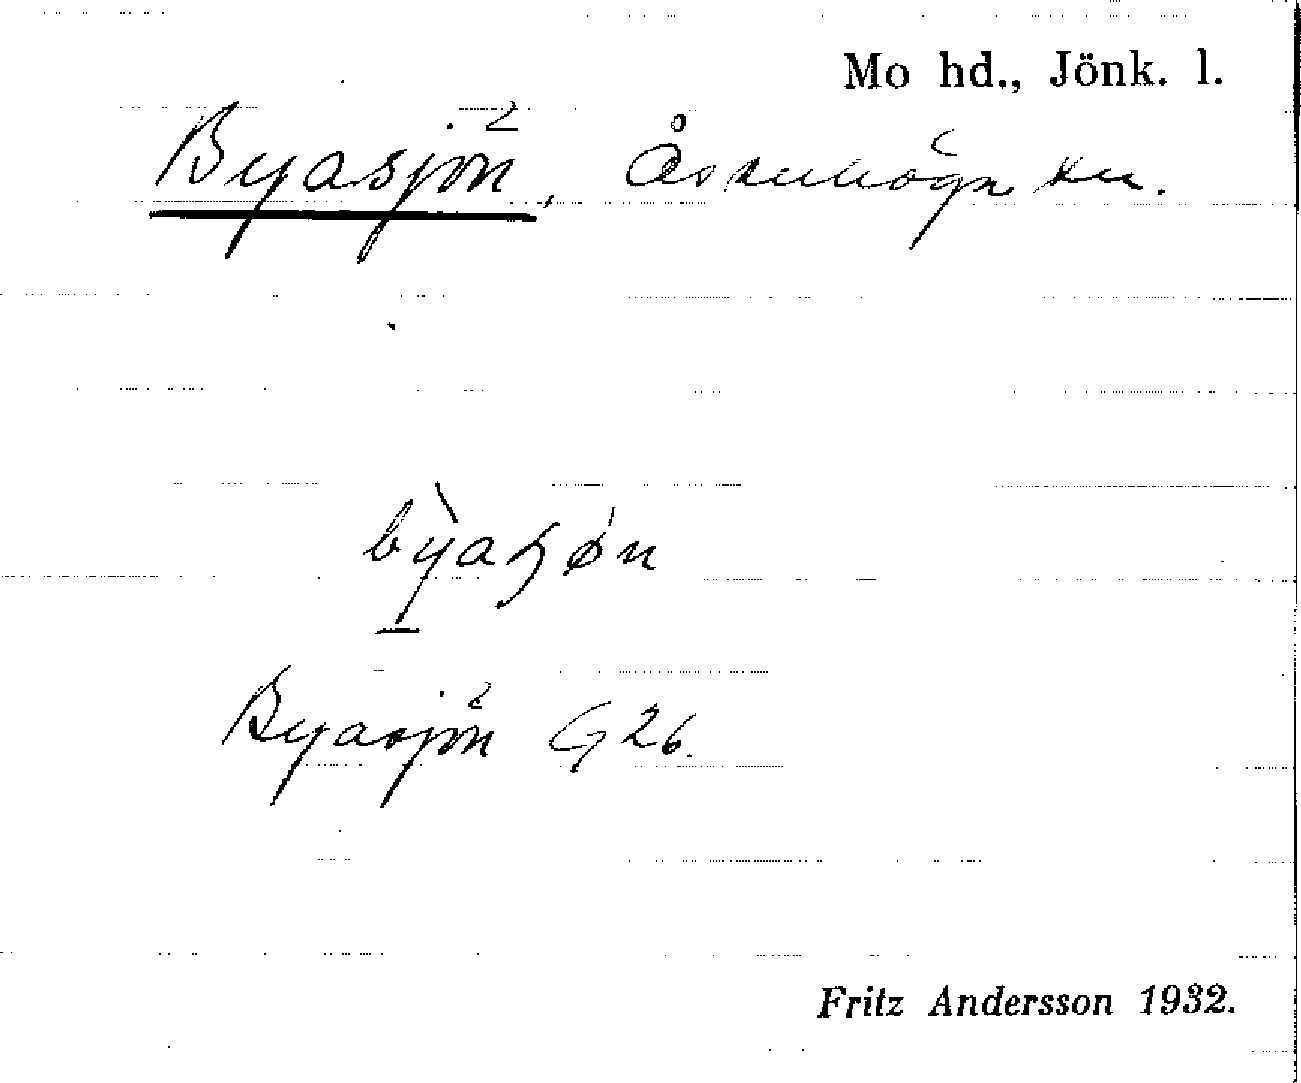 Mo hd., Jönk. l.
Byasjön, Åsenhöga sn.
byaʂøn
Byasjön G 26.
Fritz Andersson 1932.